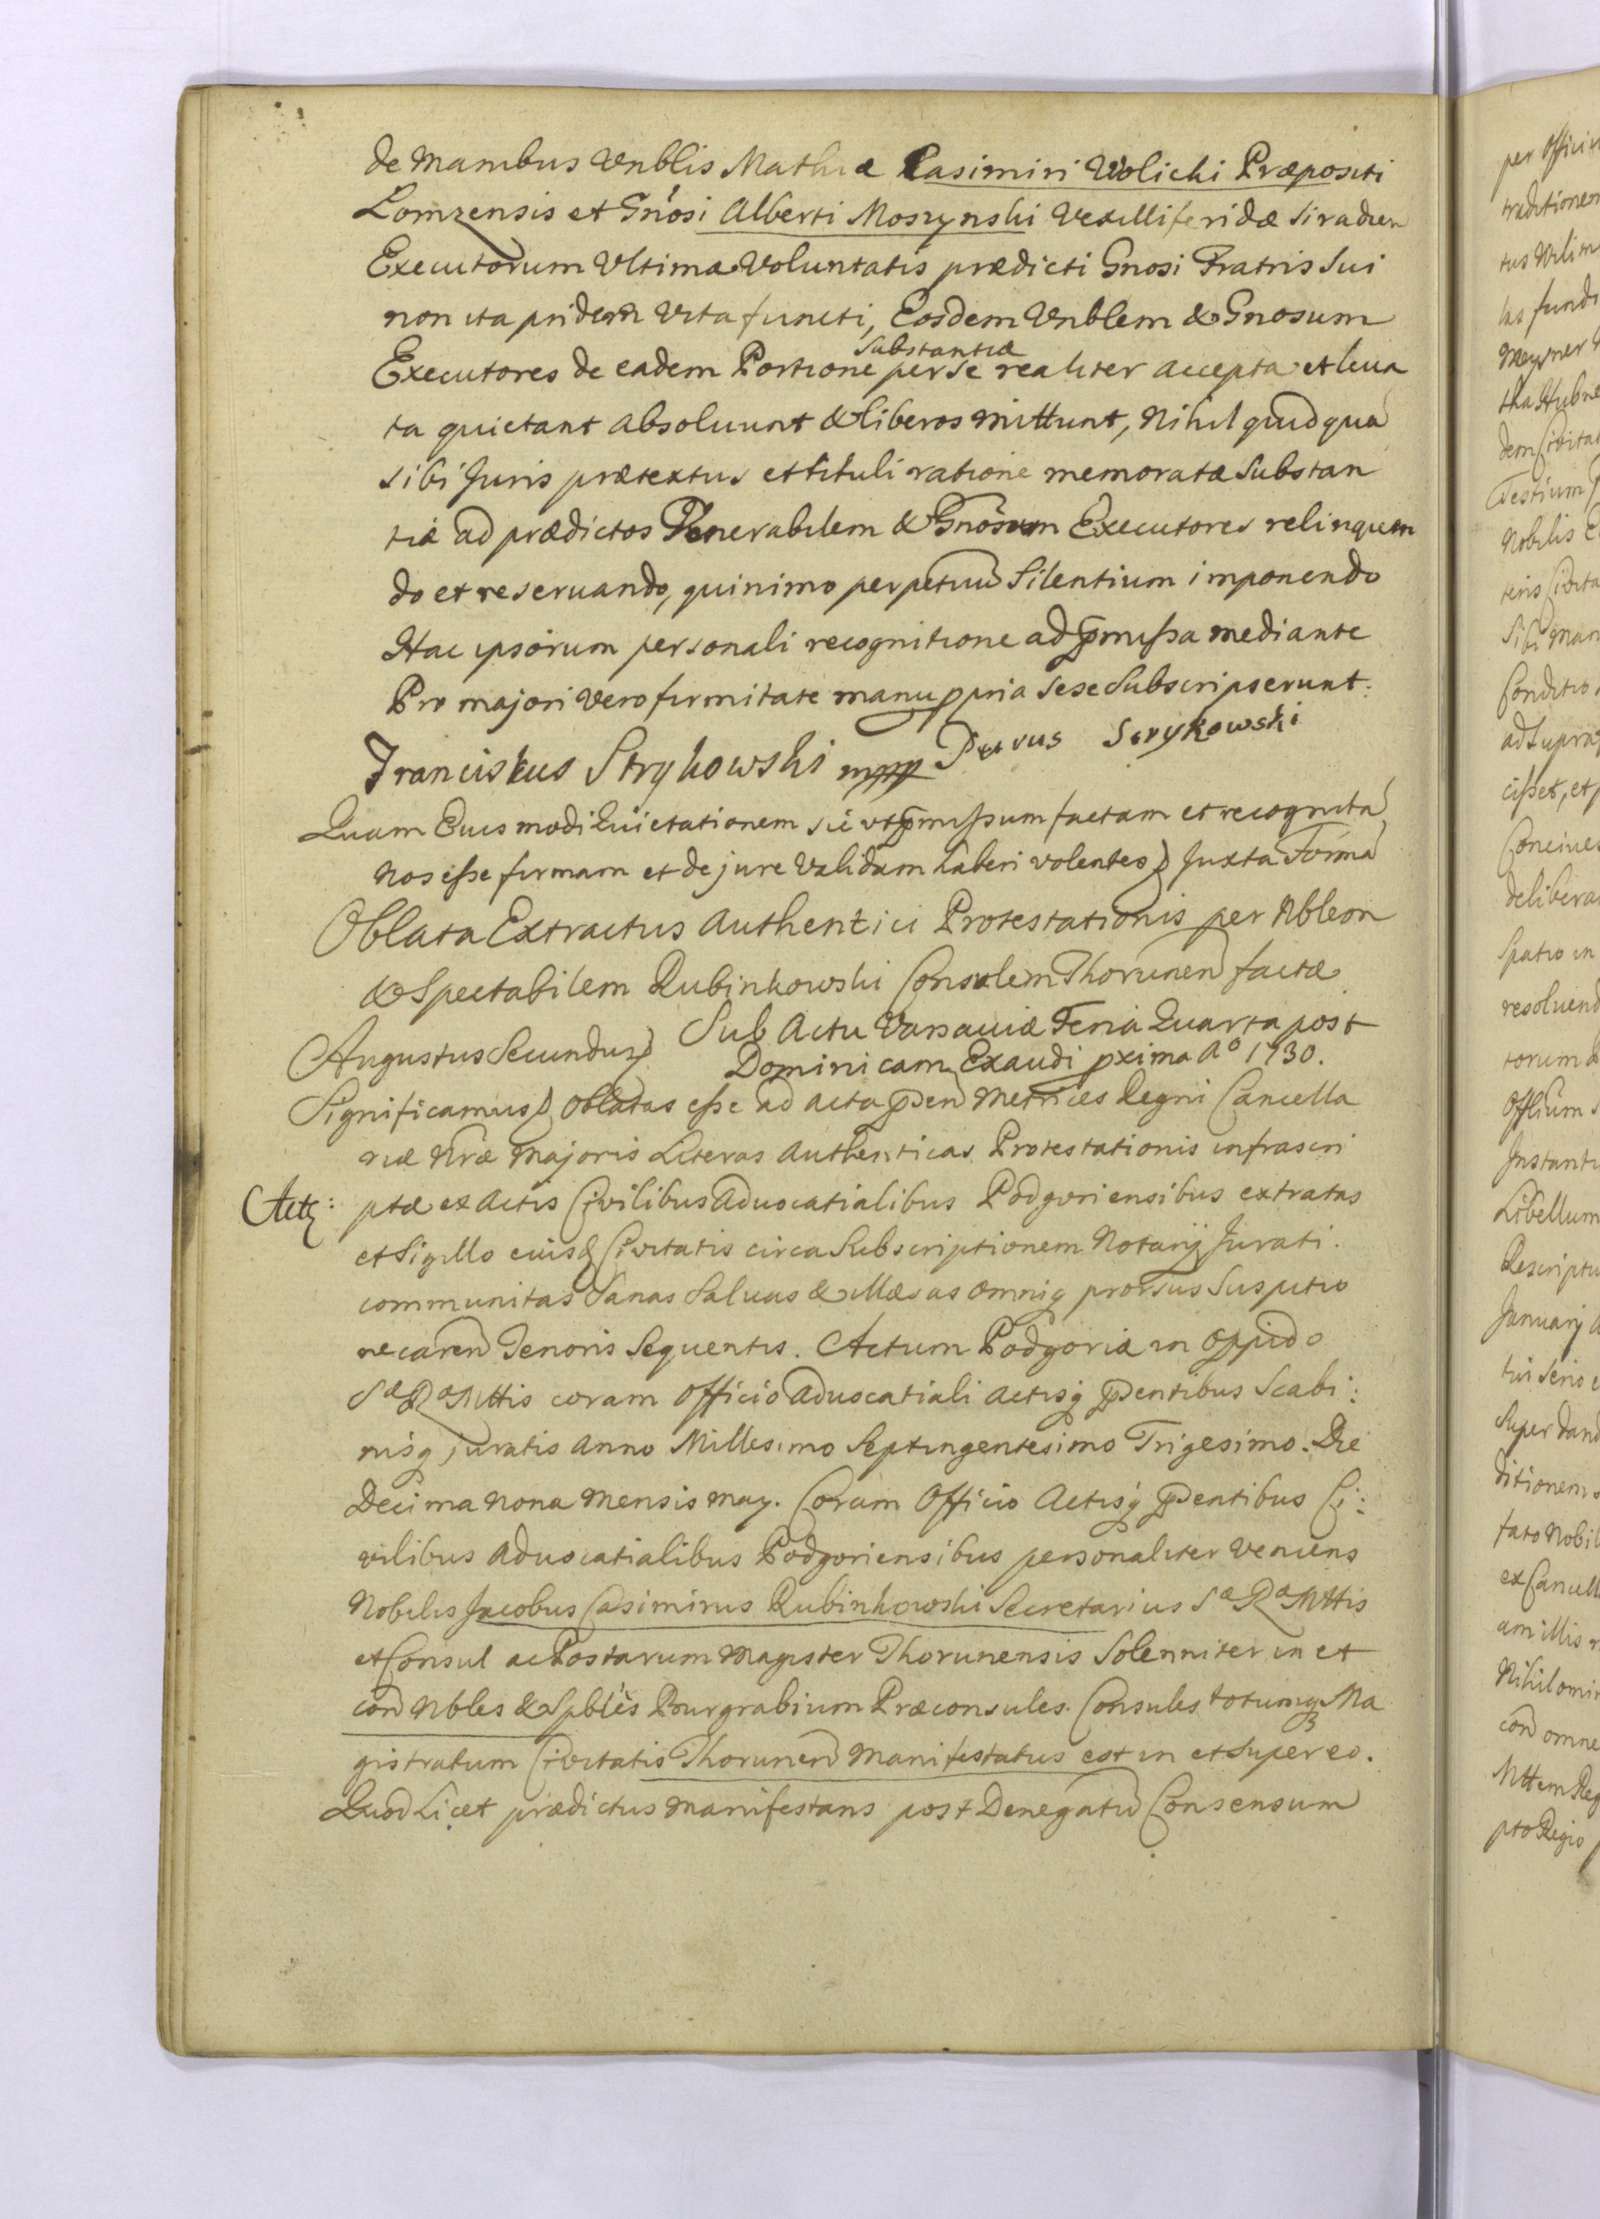 de Manibus Vnblis Mathiæ Casimiri Wolicki Præpositi
Lomzensis et Gnosi Alberti Moszynski Vexilliferidæ Siradien
Executorum Vltimæ Voluntatis prædicti Gnosi Fratris Sui
non ita pridem Vita functi, Eosdem Vnblem & Gnosum
Substantiæ
Executores de eadem Portione per se realiter accepta et leua
ta quietant absoluunt & liberos mittunt, Nihil quidquã
sibi Juris prætextus et tituli ratione memoratæ Substan
tiæ ad prædictos Venerabilem & Gnosum Executores relinquen
do et reseruando, quinimo perpetuũ Silentium imponendo
Hac ipsorum personali recognitione ad pmissa mediante
Pro majori vero firmitate manu ppria sese Subscripserunt:
Franciskus Strykowski mpp Petrus Strykowski
Quam Euismodi Quietationem sic vt pmissum factam et recognitã
Nos esse firmam et de jure Validam haberi volentes) Juxta Formã
Oblata Extractus Authentici Protestationis per Nblem
& Spectabilem Rubinkowski Consulem Thorunen factæ
Sub Actu Varsaviæ Feria Quarta post
Augustus Secundus) Dominicam Exaudi pxima Aº 1730.
Significamus) Oblatas esse ad acta pden Metrices Regni Cancella
riæ Nræ Majoris Literas Authenticas Protestationis infrascri
Actq: ptæ ex Actis Civilibus Aduocatialibus Podgoriensibus extratas
et Sigillo eiusd Civitatis circa Subscriptionem Notarij Jurati.
communitas Sanas Saluas & illæsas omniq prorsus Suspitio
ne caren Tenoris Sequentis. Actum Podgoriæ in Oppido
Sæ Ræ Mttis coram Officio Aduocatiali Actisq pdentibus Scabi:
nisq juratis Anno Millesimo Septingentesimo Trigesimo. Die
Decima Nona Mensis May. Coram Officio Actisq pdentibus Ci:
vilibus Aduocatialibus Podgoriensibus personaliter Veniens
Nobilis Jacobus Casimirus Rubinkowski Secretarius Sæ Ræ Mttis
et Consul ac Postarum Magister Thorunensis Solenniter in et
con Nbles & Spbles Burgrabium Præconsules Consules totumq Ma
gistratum Civitatis Thorunen Manifestatus est in et super eo.
Quod Licet prædictus Manifestans post Denegatũ Consensum
per Officiu
traditionem
las fundi
Testium
Nobilis
Sibi
Conditio
cisset, et
Concives
delibera
Spatio in
resoluend
torum
Offlium
Instanti
Libellum
Rescriptu
Januarij
tui serio
Super dand
ditionem
fato Nobil
ex Cancell
am illis
Nihilomin
con omne
Mttem Reg
pto Regio